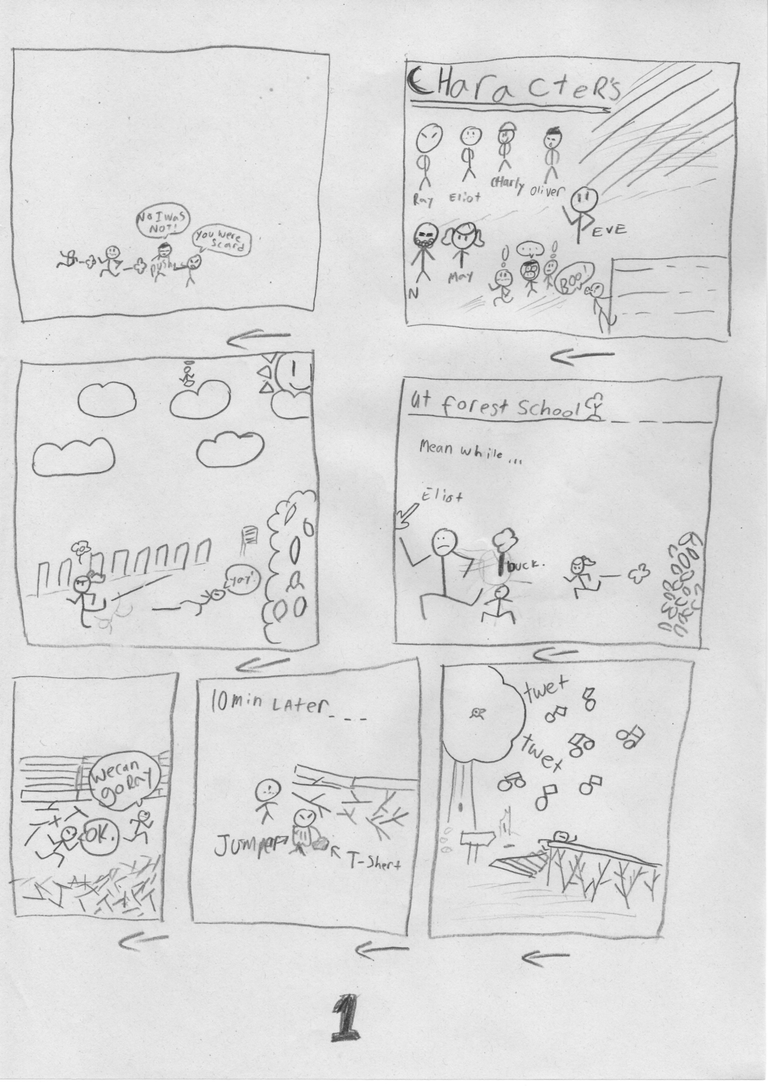 CHaracteR's
Ray
Eliot
cHarly
Oliver
EVE
N
May
BOO!
No I was
NOT!
You were
Scard
PUSH
at forest School
Mean while...
Eliot
Duck.
yay!
twet
twet
10 min LAter...
Jumper
T-Shert
we can
go Ray
OK.
1